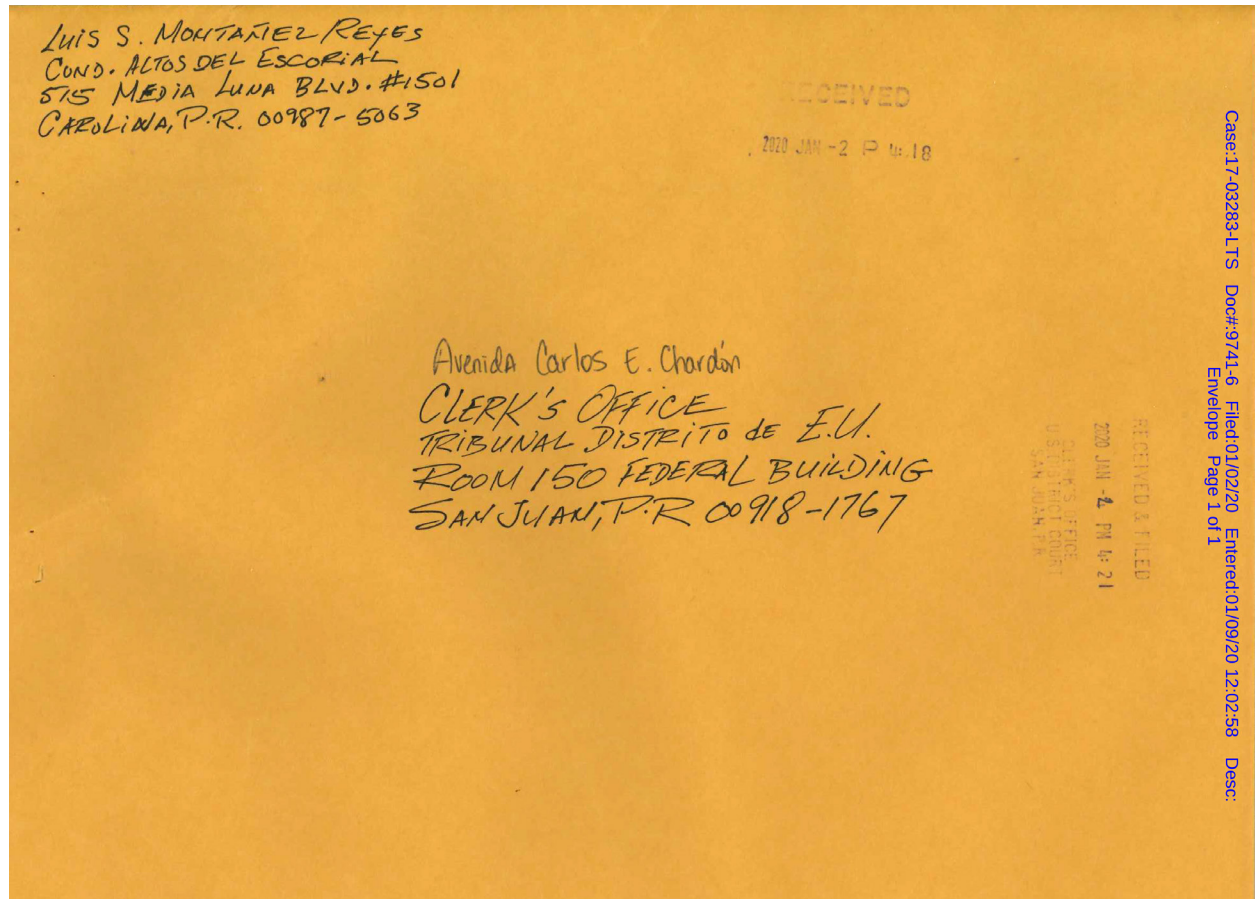 LUIS S. MONTAÑEZ REYES
COND. ALTOS DEL ESCORIAL
515 MEDIA LUNA BLVD. #1501
CAROLINA, P.R. 00987-5063
RECEIVED
2020 JAN -2 P 4:18
Avenida Carlos E. Chardón
CLERK'S OFFICE
TRIBUNAL DISTRITO de E.U.
ROOM 150 FEDERAL BUILDING
SAN JUAN, P.R 00918-1767
RECEIVED & FILED
2020 JAN -2 PM 4:21
CLERK'S OFFICE
U S DISTRICT COURT
SAN JUAN, P R
Case:17-03283-LTS Doc#:9741-6 Filed:01/02/20 Entered:01/09/20 12:02:58 Desc:
Envelope Page 1 of 1